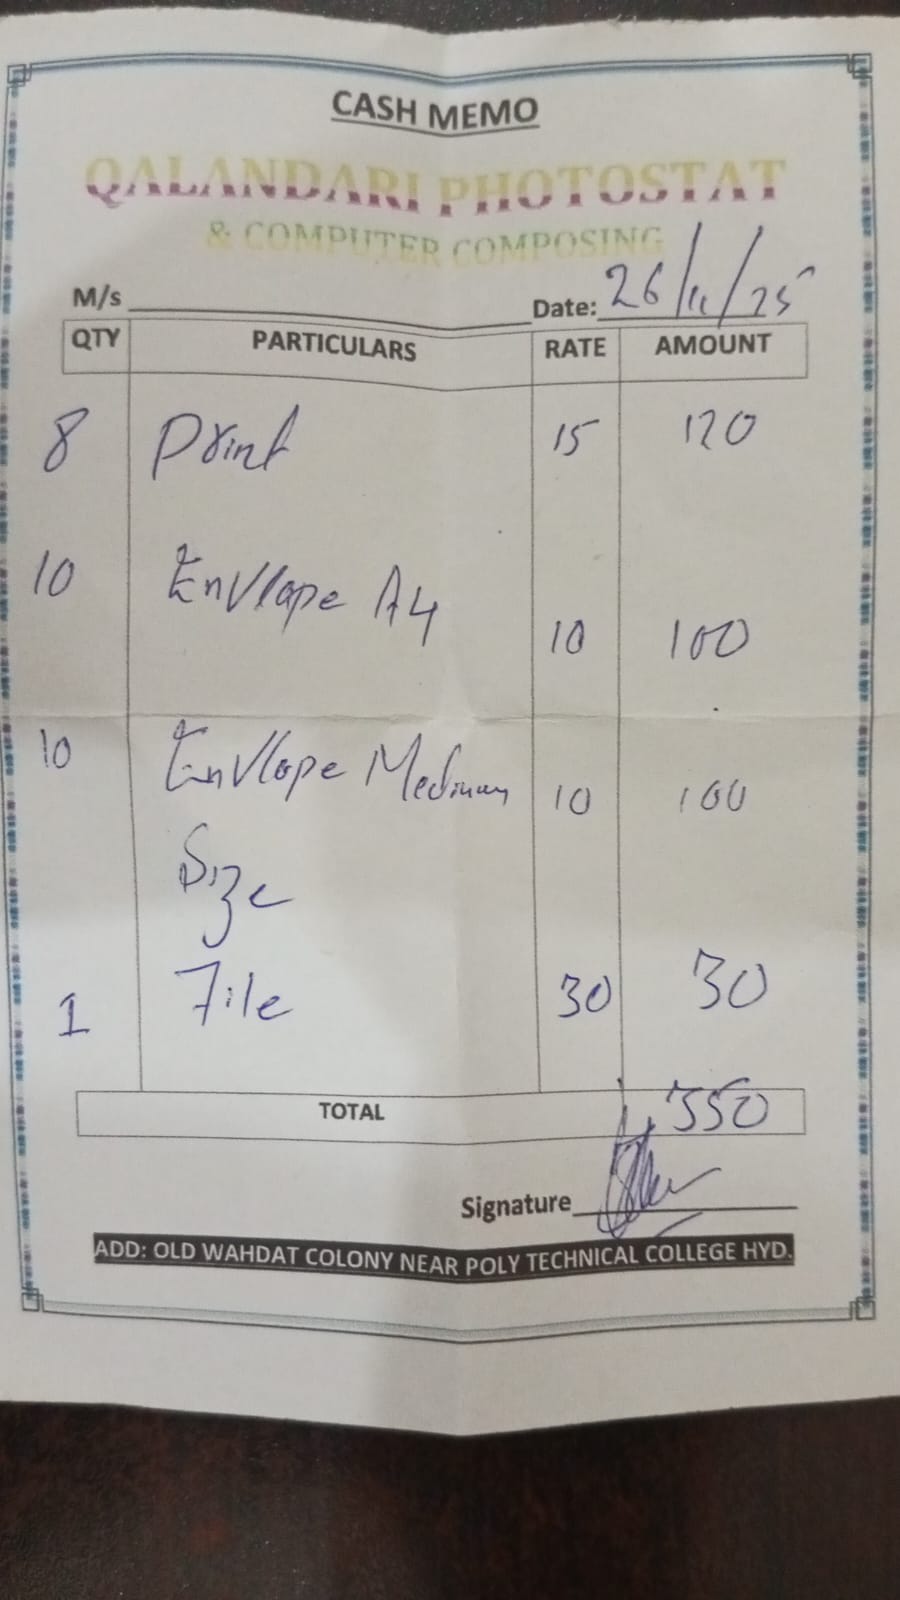 CASH MEMO
QALANDARI PHOTOSTAT
& COMPUTER COMPOSING
M/s Date: 26/11/25
QTY PARTICULARS RATE AMOUNT
8 Print 15 120
10 Envlope A4 10 100
10 Envlope Medium 10 100
Size
1 File 30 30
TOTAL 350
Signature
ADD: OLD WAHDAT COLONY NEAR POLY TECHNICAL COLLEGE HYD.